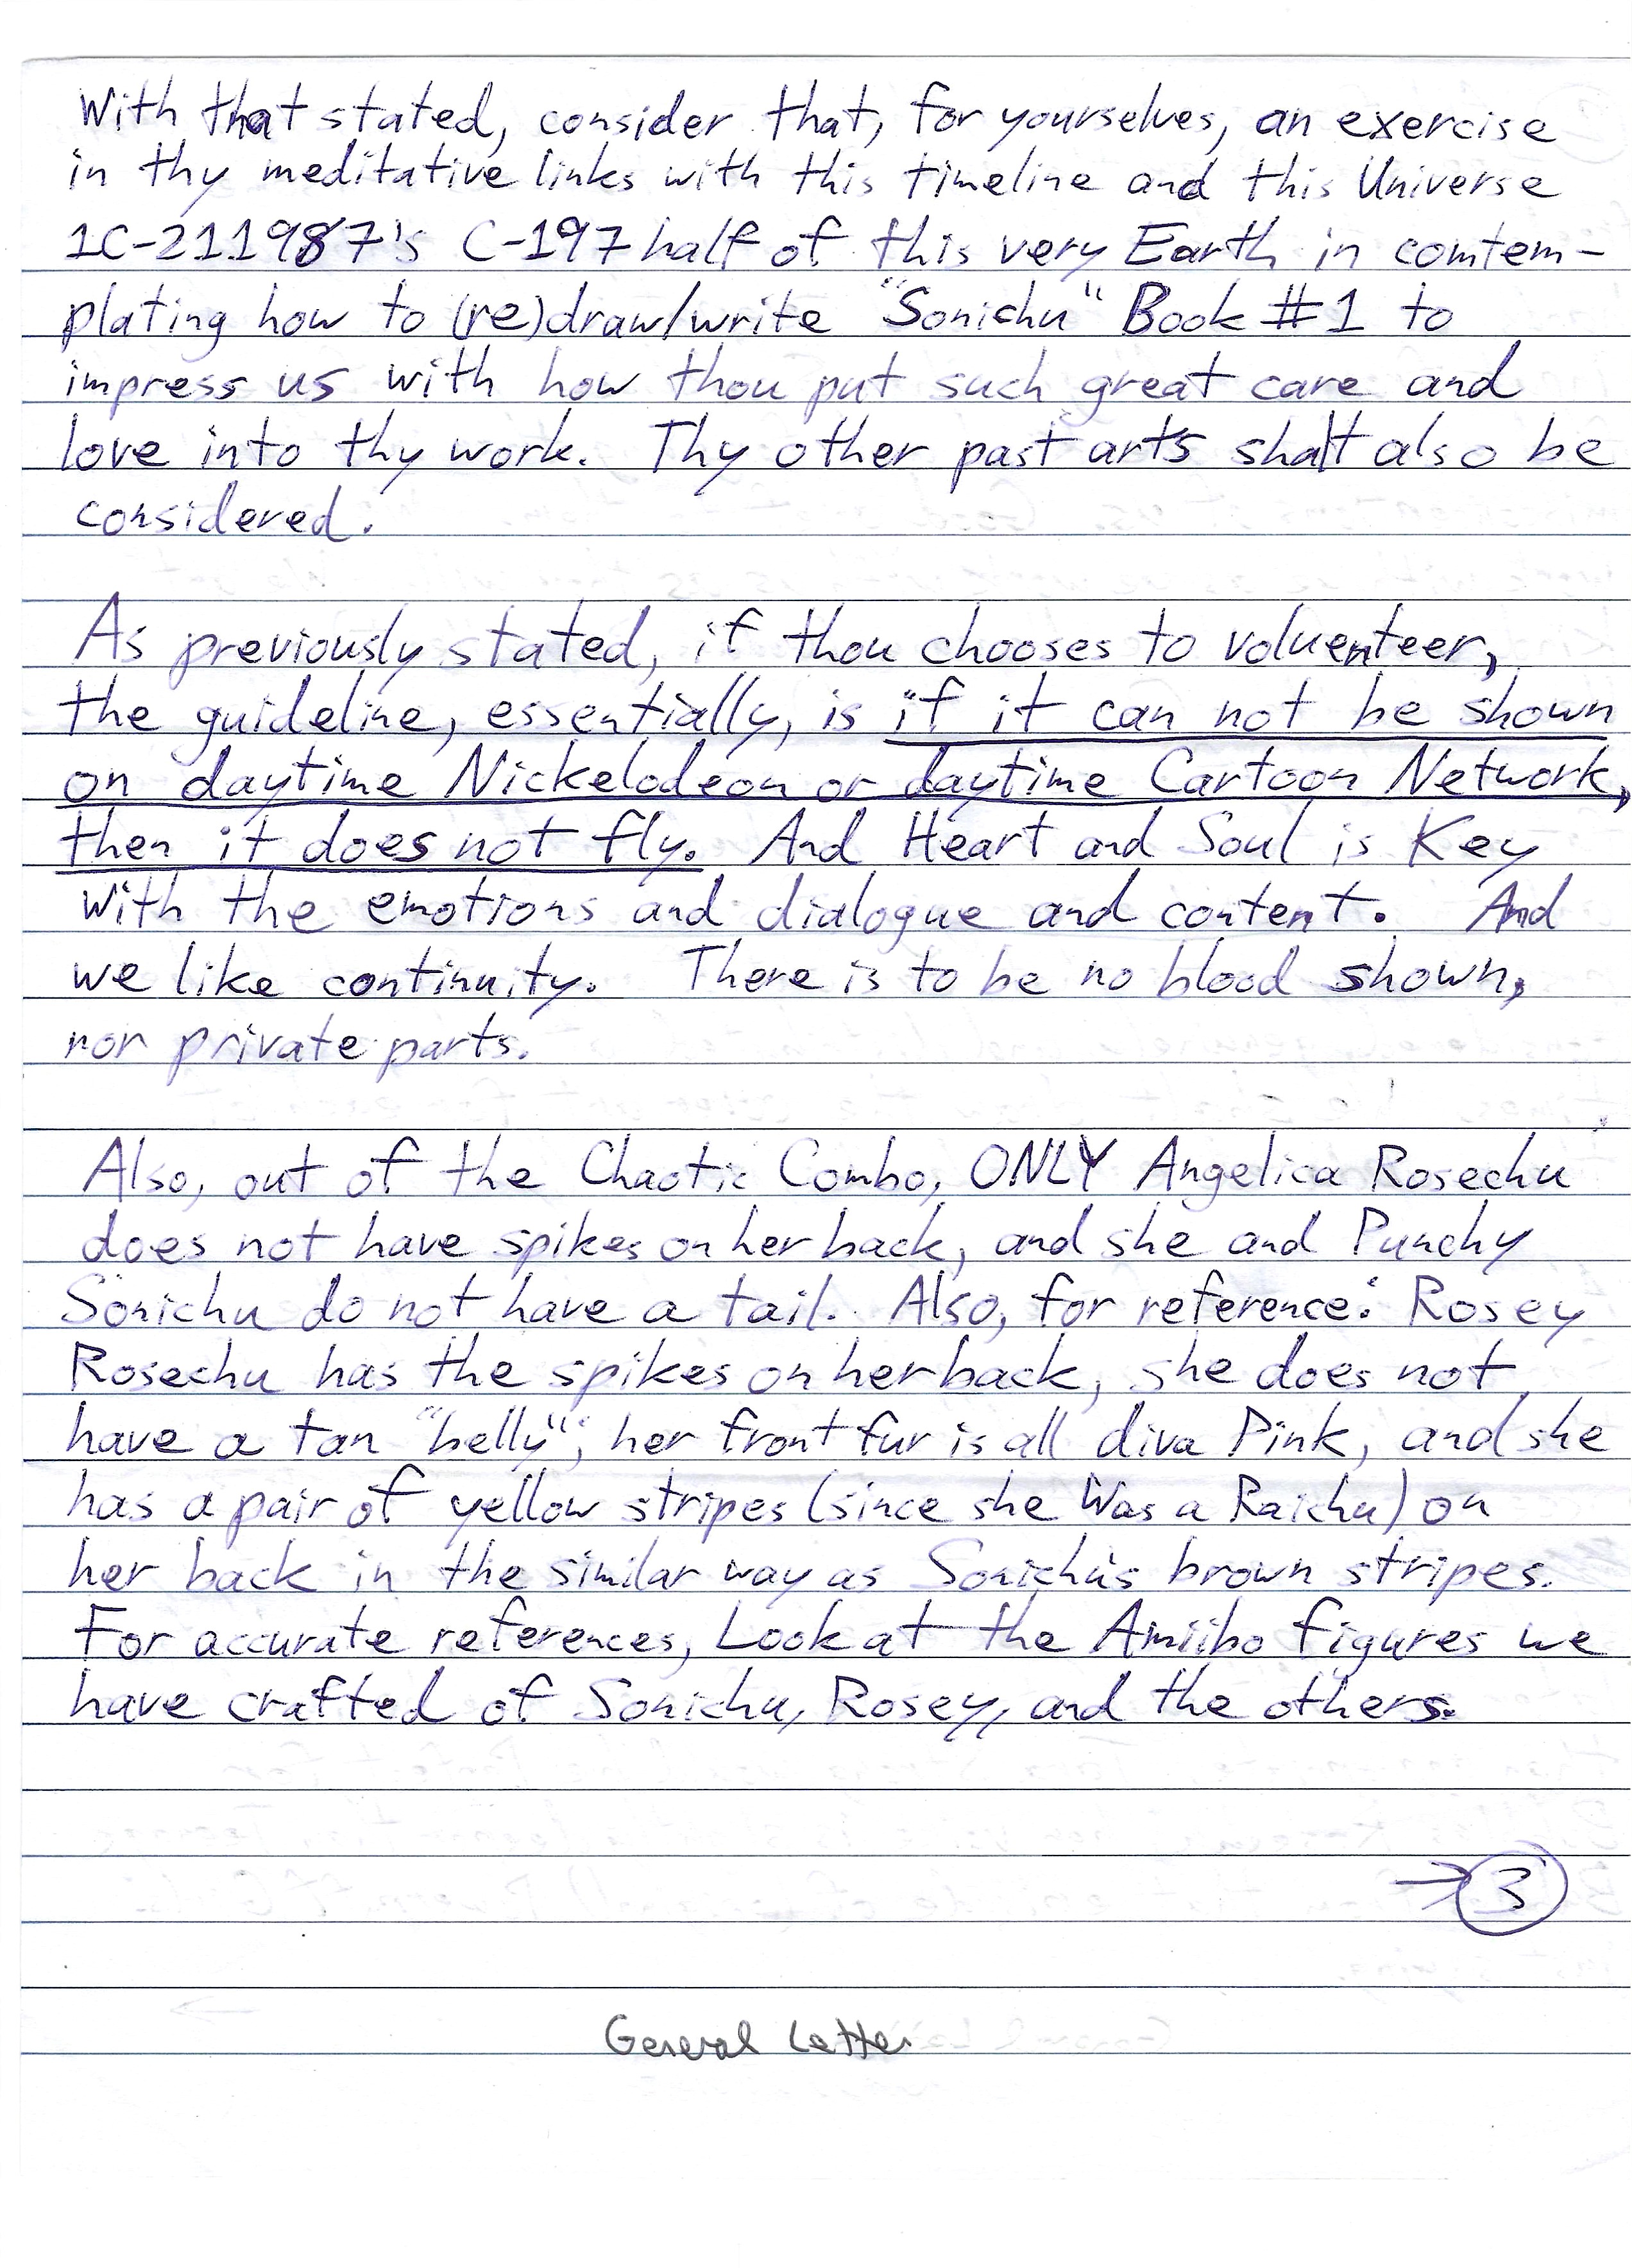 With that stated, consider that, for yourselves, an exercise
in thy meditative links with this timeline and this Universe
1C-211987's C-197 half of this very Earth in comtem-
plating how to (re)draw/write "Sonichu" Book #1 to
impress us with how thou put such great care and
love into thy work. Thy other past arts shalt also be
considered.
As previously stated, if thou chooses to voluenteer,
the guideline, essentially, is if it can not be shown
on daytime Nickelodeon or daytime Cartoon Network,
then it does not fly. And Heart and Soul is Key
with the emotions and dialogue and content. And
we like continuity. There is to be no blood shown,
nor private parts.
Also, out of the Chaotic Combo, ONLY Angelica Rosechu
does not have spikes on her back, and she and Punchy
Sonichu do not have a tail. Also, for reference: Rosey
Rosechu has the spikes on her back, she does not
have a tan "belly"; her front fur is all diva Pink, and she
has a pair of yellow stripes (since she Was a Raichu) on
her back in the similar way as Sonichu's brown stripes.
For accurate references, Look at the Amiibo figures we
have crafted of Sonichu, Rosey, and the others.
→ 3
General Letter